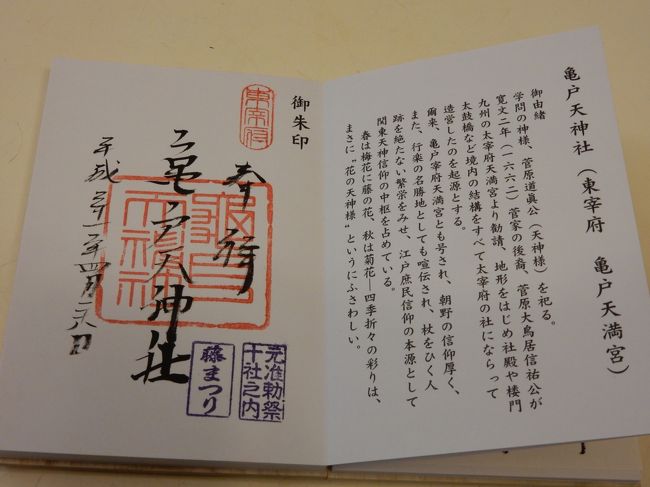 亀戸天神社（東宰府　亀戸天満宮）
御由緒
学問の神様、菅原道眞公（天神様）を祀る。
寛文二年（一六六二）菅家の後裔、菅原大鳥居信祐公が
九州の太宰府天満宮より勧請、地形をはじめ社殿や楼門
太鼓橋など境内の結構をすべて太宰府の社にならって
造営したのを起源とする。
爾来、亀戸宰府天満宮とも号され、朝野の信仰厚く、
また、行楽の名勝地としても喧伝され、杖をひく人
跡を絶たない繁栄をみせ、江戸庶民信仰の本源として
関東天神信仰の中枢を占めている。
春は梅花に藤の花、秋は菊花―四季折々の彩りは、
まさに〝花の天神様〟というにふさわしい。
御朱印
東宰府
奉拝
亀戸天神社
元准勅祭
十社之内
藤まつり
平成 年四月 日